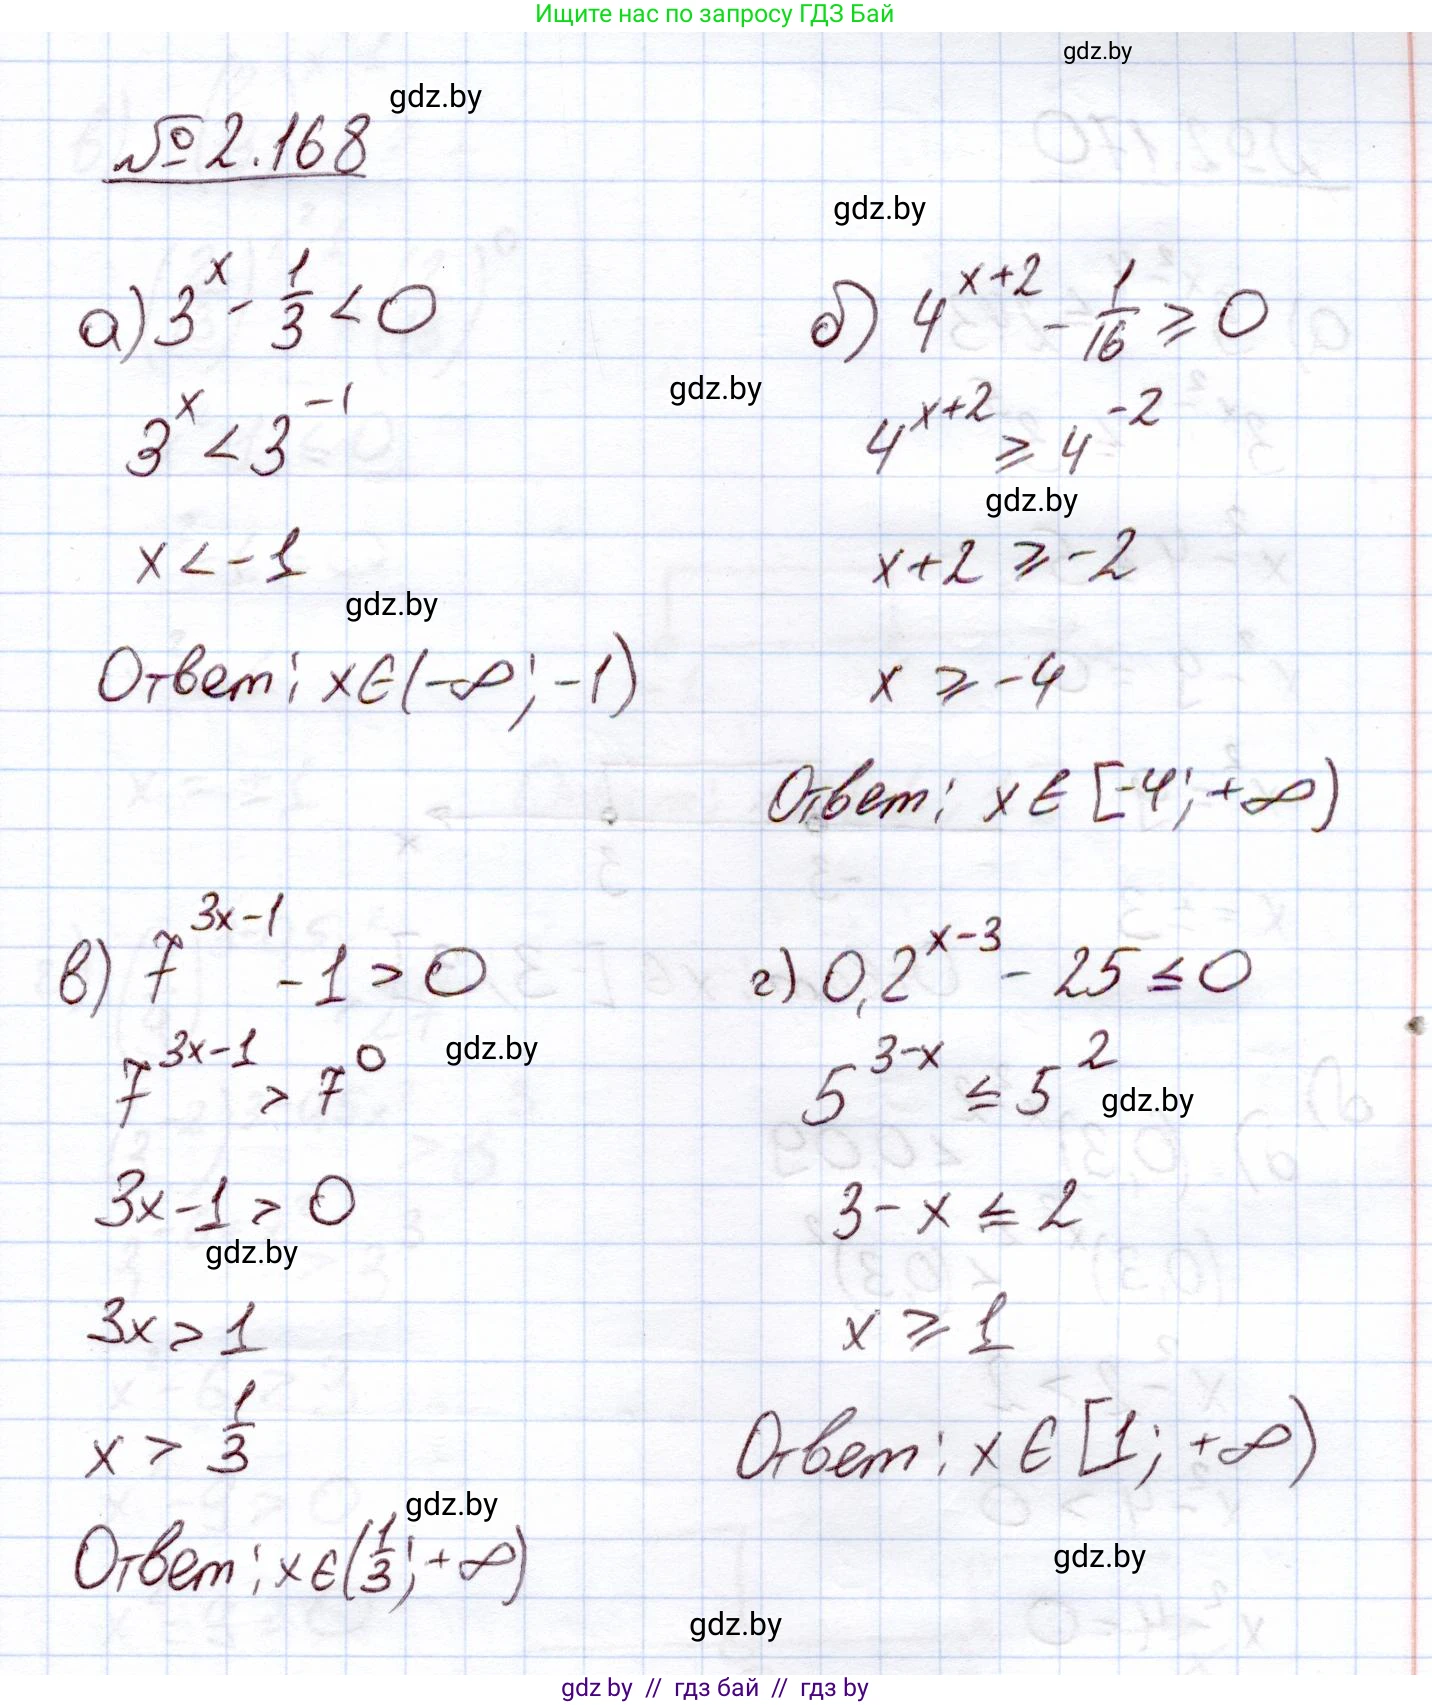 Ищите нас по запросу ГДЗ Бай
gdz.by
gdz.by
№2.168
gdz.by
а) 3^x - 1/3 < 0
3^x < 3^-1
x < -1
gdz.by
Ответ: x ∈ (-∞; -1)
б) 4^x+2 - 1/16 ⩾ 0
gdz.by
4^x+2 ⩾ 4^-2
gdz.by
x+2 ⩾ -2
x ⩾ -4
Ответ: x ∈ [-4; +∞)
в) 7^3x-1 - 1 > 0
7^3x-1 > 7^0
gdz.by
3x-1 > 0
gdz.by
3x > 1
x > 1/3
gdz.by
Ответ: x ∈ (1/3; +∞)
г) 0,2^x-3 - 25 ≤ 0
5^3-x ≤ 5^2
gdz.by
3-x ≤ 2
x ⩾ 1
Ответ: x ∈ [1; +∞)
gdz.by
gdz.by
gdz by // гдз бай // гдз by